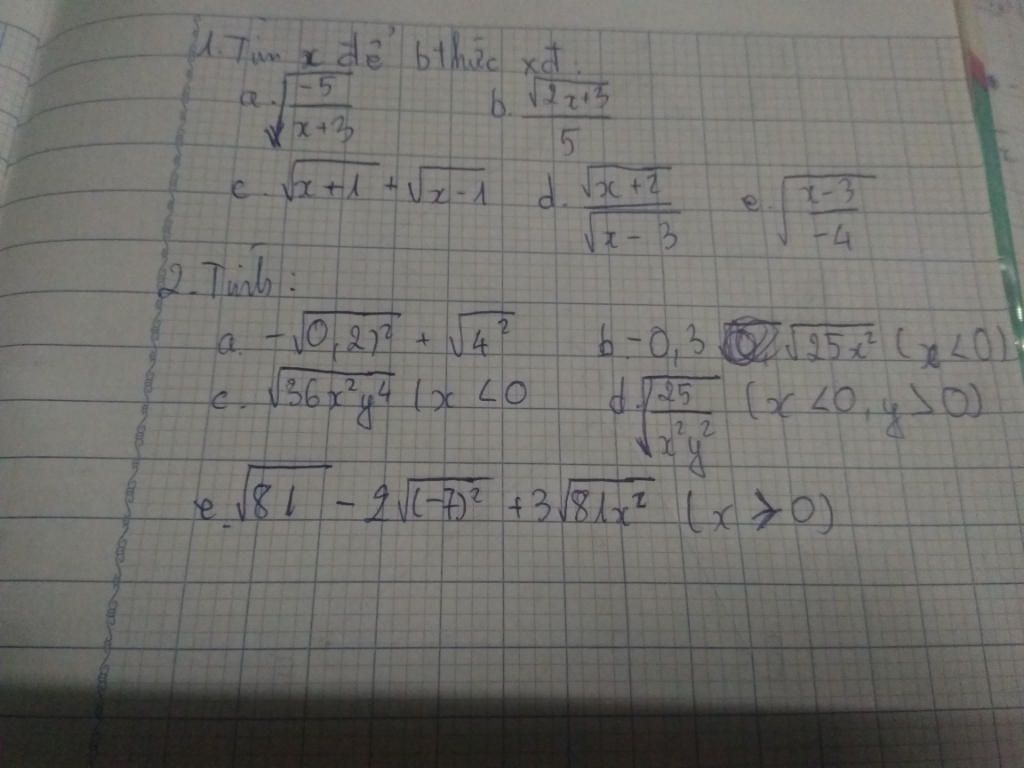 1. Tìm x để bthức xđ.
a. √(-5/(x+3)) b. √(2x+3)/5
c. √(x+1) + √(x-1) d. √(x+2)/√(x-3) e. √((x-3)/-4)
2. Tính:
a. -√(0,2)² + √4² b. -0,3 √25x² (x<0)
c. √36x²y⁴ (x<0 d. √(25/x²y²) (x<0, y>0)
e. √81 - 2√(-7)² + 3√81x² (x>0)